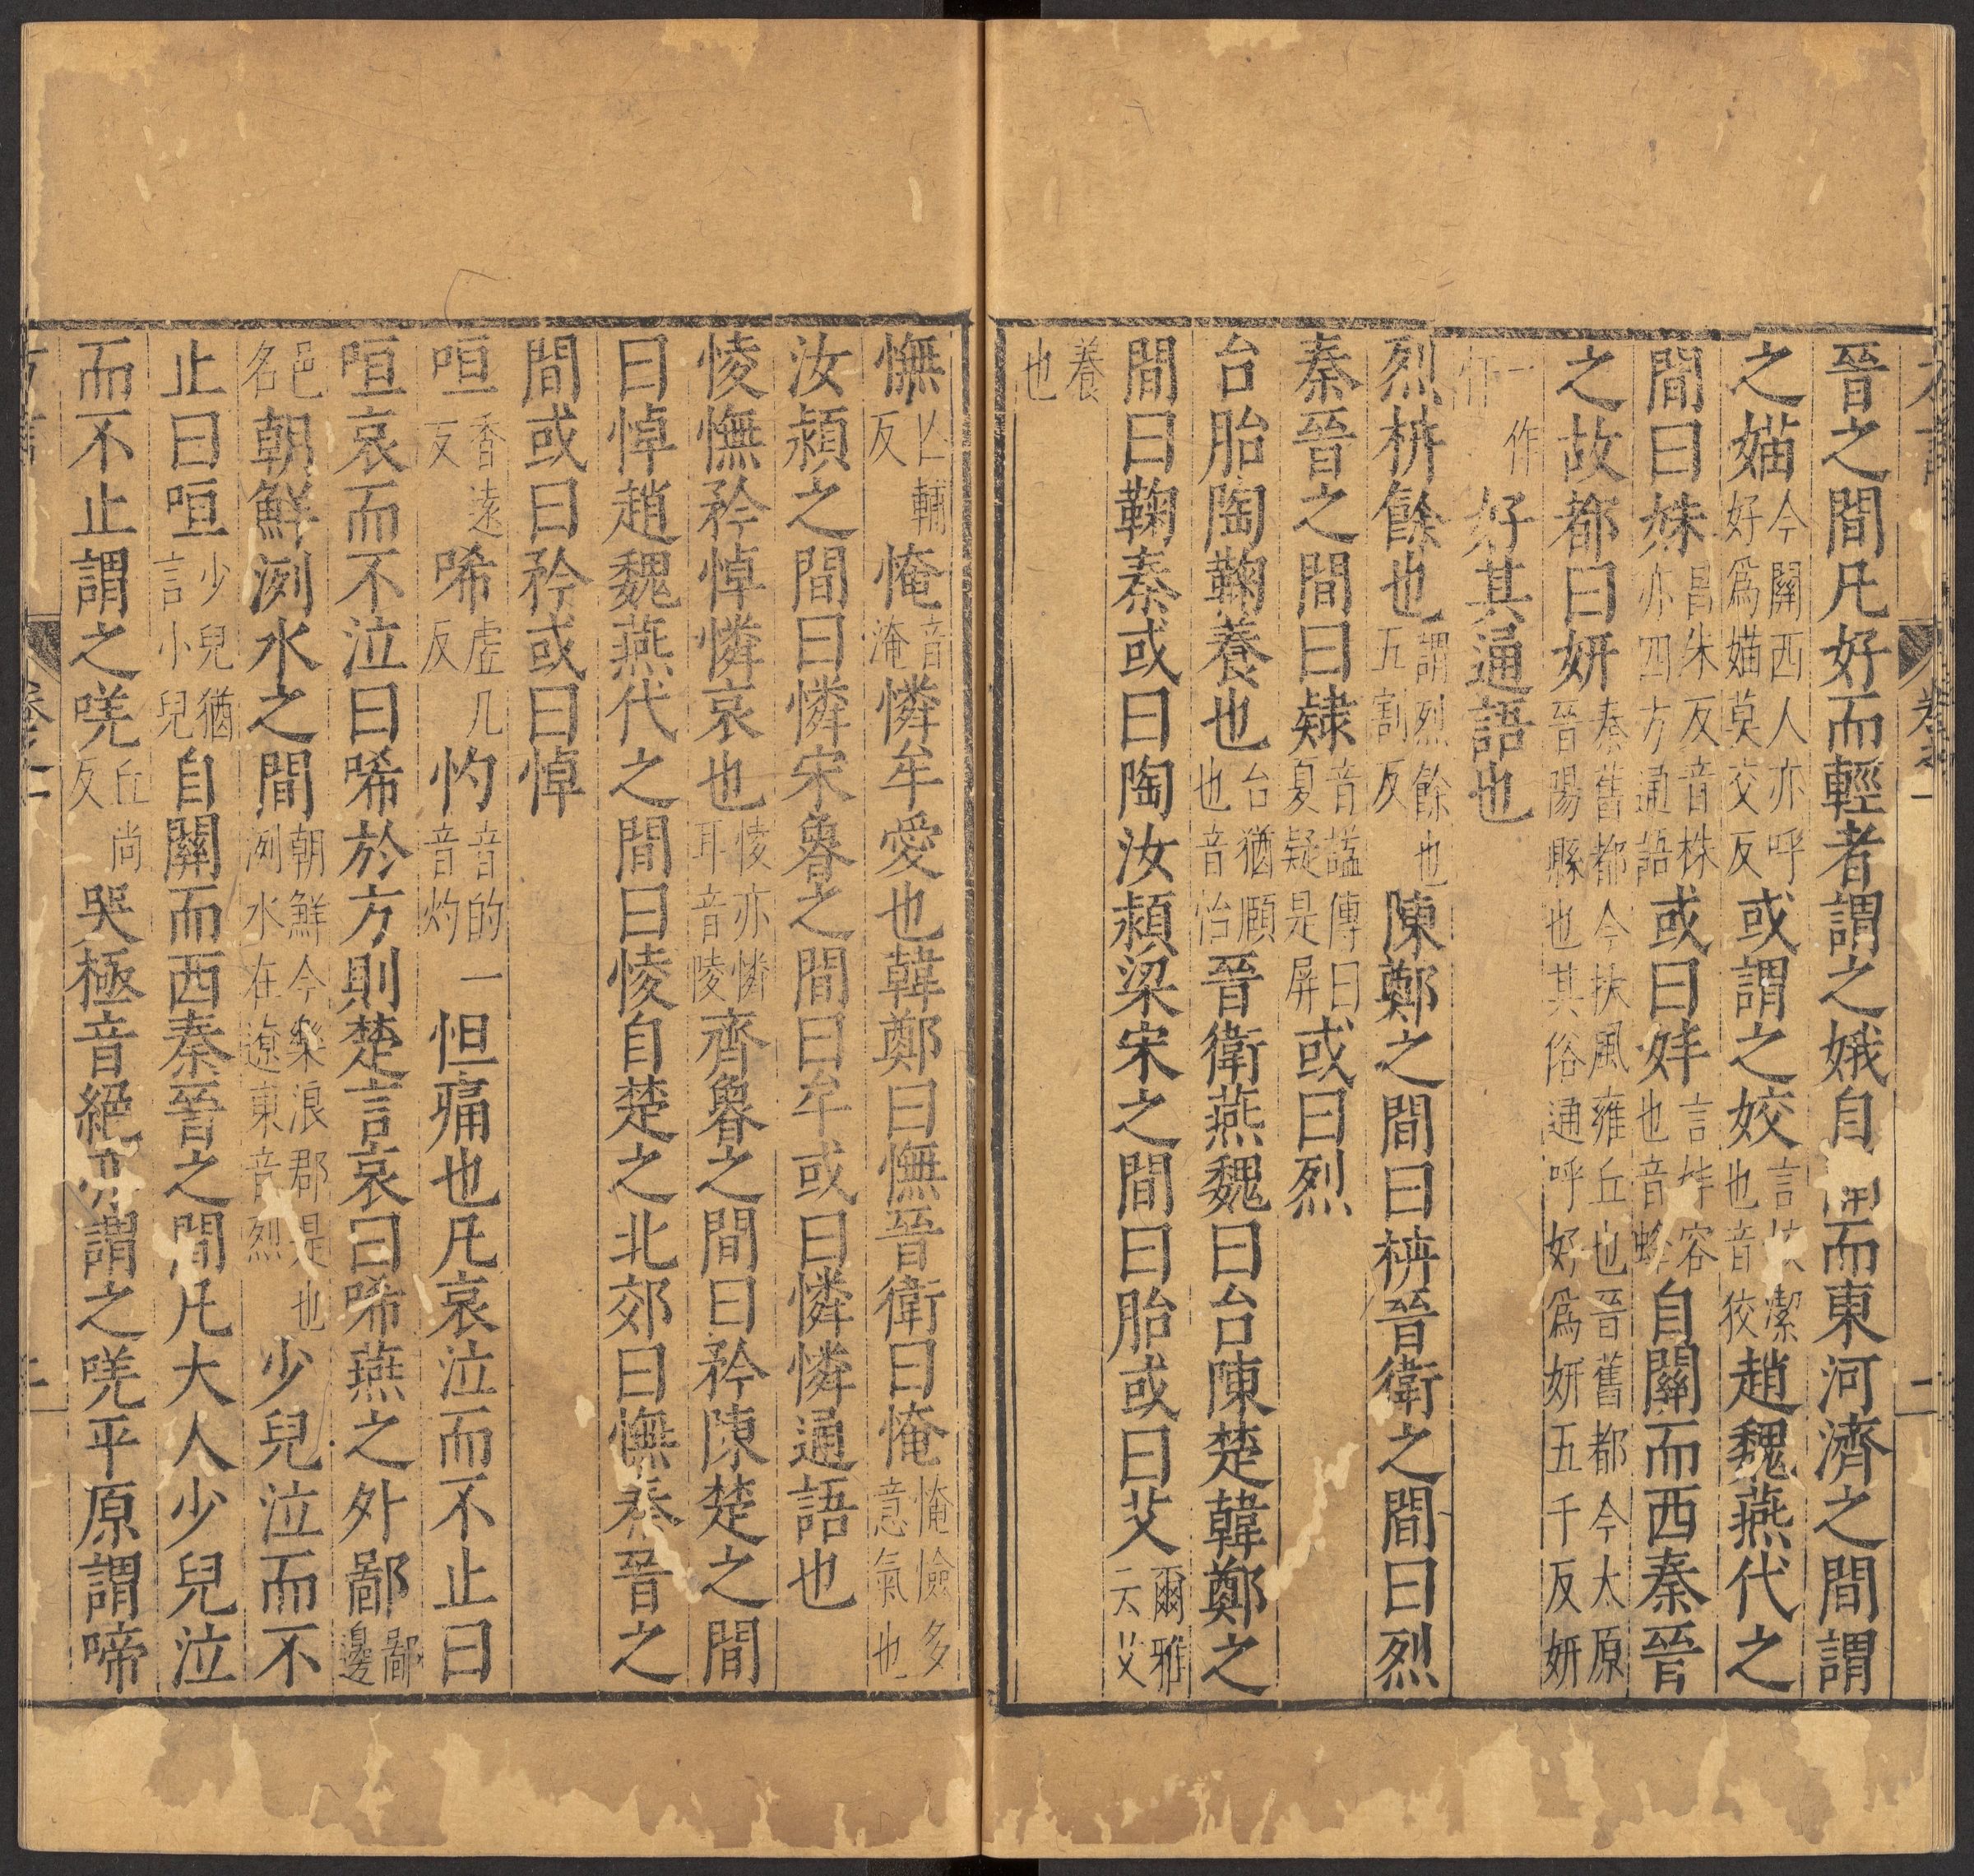 晉之間凡好而輕者謂之娥自而東河濟之間謂
之媌今關西人亦呼好爲媌莫交反或謂之姣言潔也音狡趙魏燕代之
間曰姝昌朱反音株亦四方通語或曰妦言妦容也音蜂自關而西秦晉
之故都曰妍秦舊都今扶風雍丘也晉舊都今太原晉陽縣也其俗通呼好爲妍五千反妍
一作作好其通語也
烈枿餘也謂烈餘也五割反陳鄭之間曰枿晉衛之間曰烈
秦晉之間曰肄音謚傳曰夏疑是屏或曰烈
台胎陶鞠養也台猶頤也音怡晉衛燕魏曰台陳楚韓鄭之
間曰鞠秦或曰陶汝潁梁宋之間曰胎或曰艾爾雅云艾
養也
憮亾輔反㤿音淹憐牟愛也韓鄭曰憮晉衛曰㤿㤿憸多意氣也
汝潁之間曰憐宋魯之間曰牟或曰憐憐通語也
㥄憮矜悼憐哀也㥄亦憐耳音陵齊魯之間曰矜陳楚之間
曰悼趙魏燕代之間曰㥄自楚之北郊曰憮秦晉之
間或曰矜或曰悼
咺香遠反唏虛几反㣿音的一音灼怛痛也凡哀泣而不止曰
咺哀而不泣曰唏於方則楚言哀曰唏燕之外鄙鄙邊
邑名朝鮮洌水之間朝鮮今樂浪郡是也洌水在遼東音烈少兒泣而不
止曰咺少兒猶言小兒自關而西秦晉之間凡大人少兒泣
而不止謂之唴丘尚反哭極音絕亦謂之唴平原謂啼
方言
卷之一